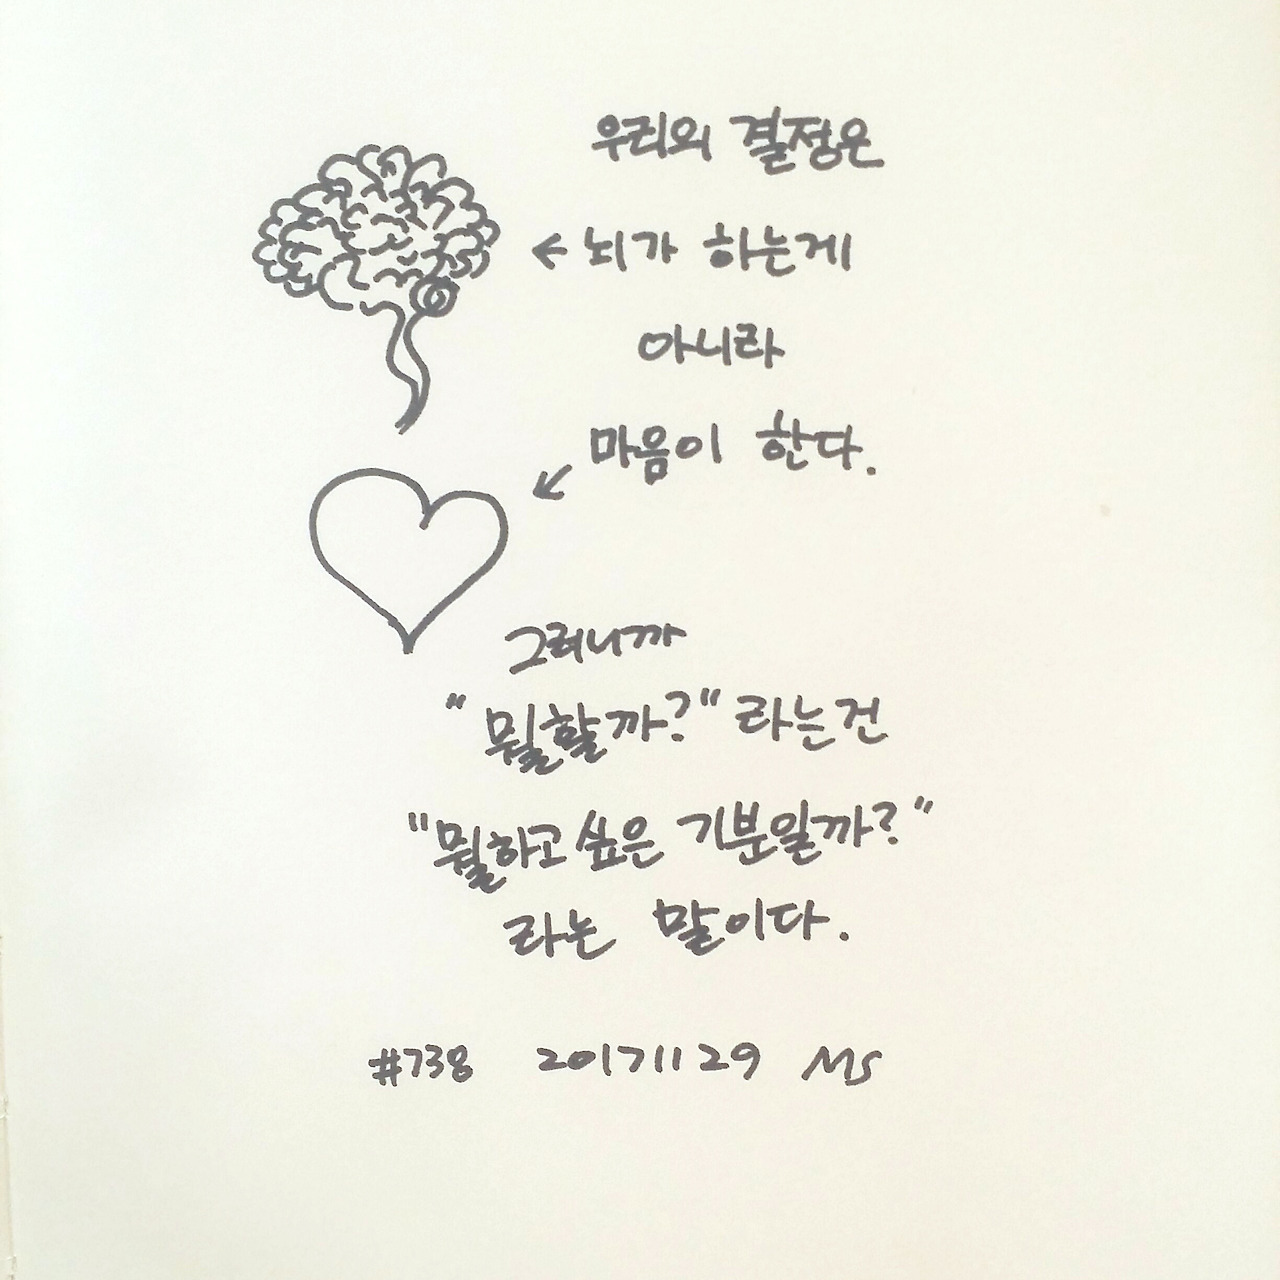 우리의 결정은
← 뇌가 하는게
아니라
↙ 마음이 한다.
그러니까
"뭘할까?" 라는건
"뭘하고 싶은 기분일까?"
라는 말이다.
#738 20171129 MS